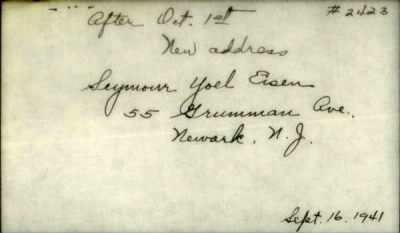 After Oct. 1st
# 2423
New address
Seymour Yoel Eisen
55 Grumman Ave.,
Newark, N.J.
Sept. 16, 1941